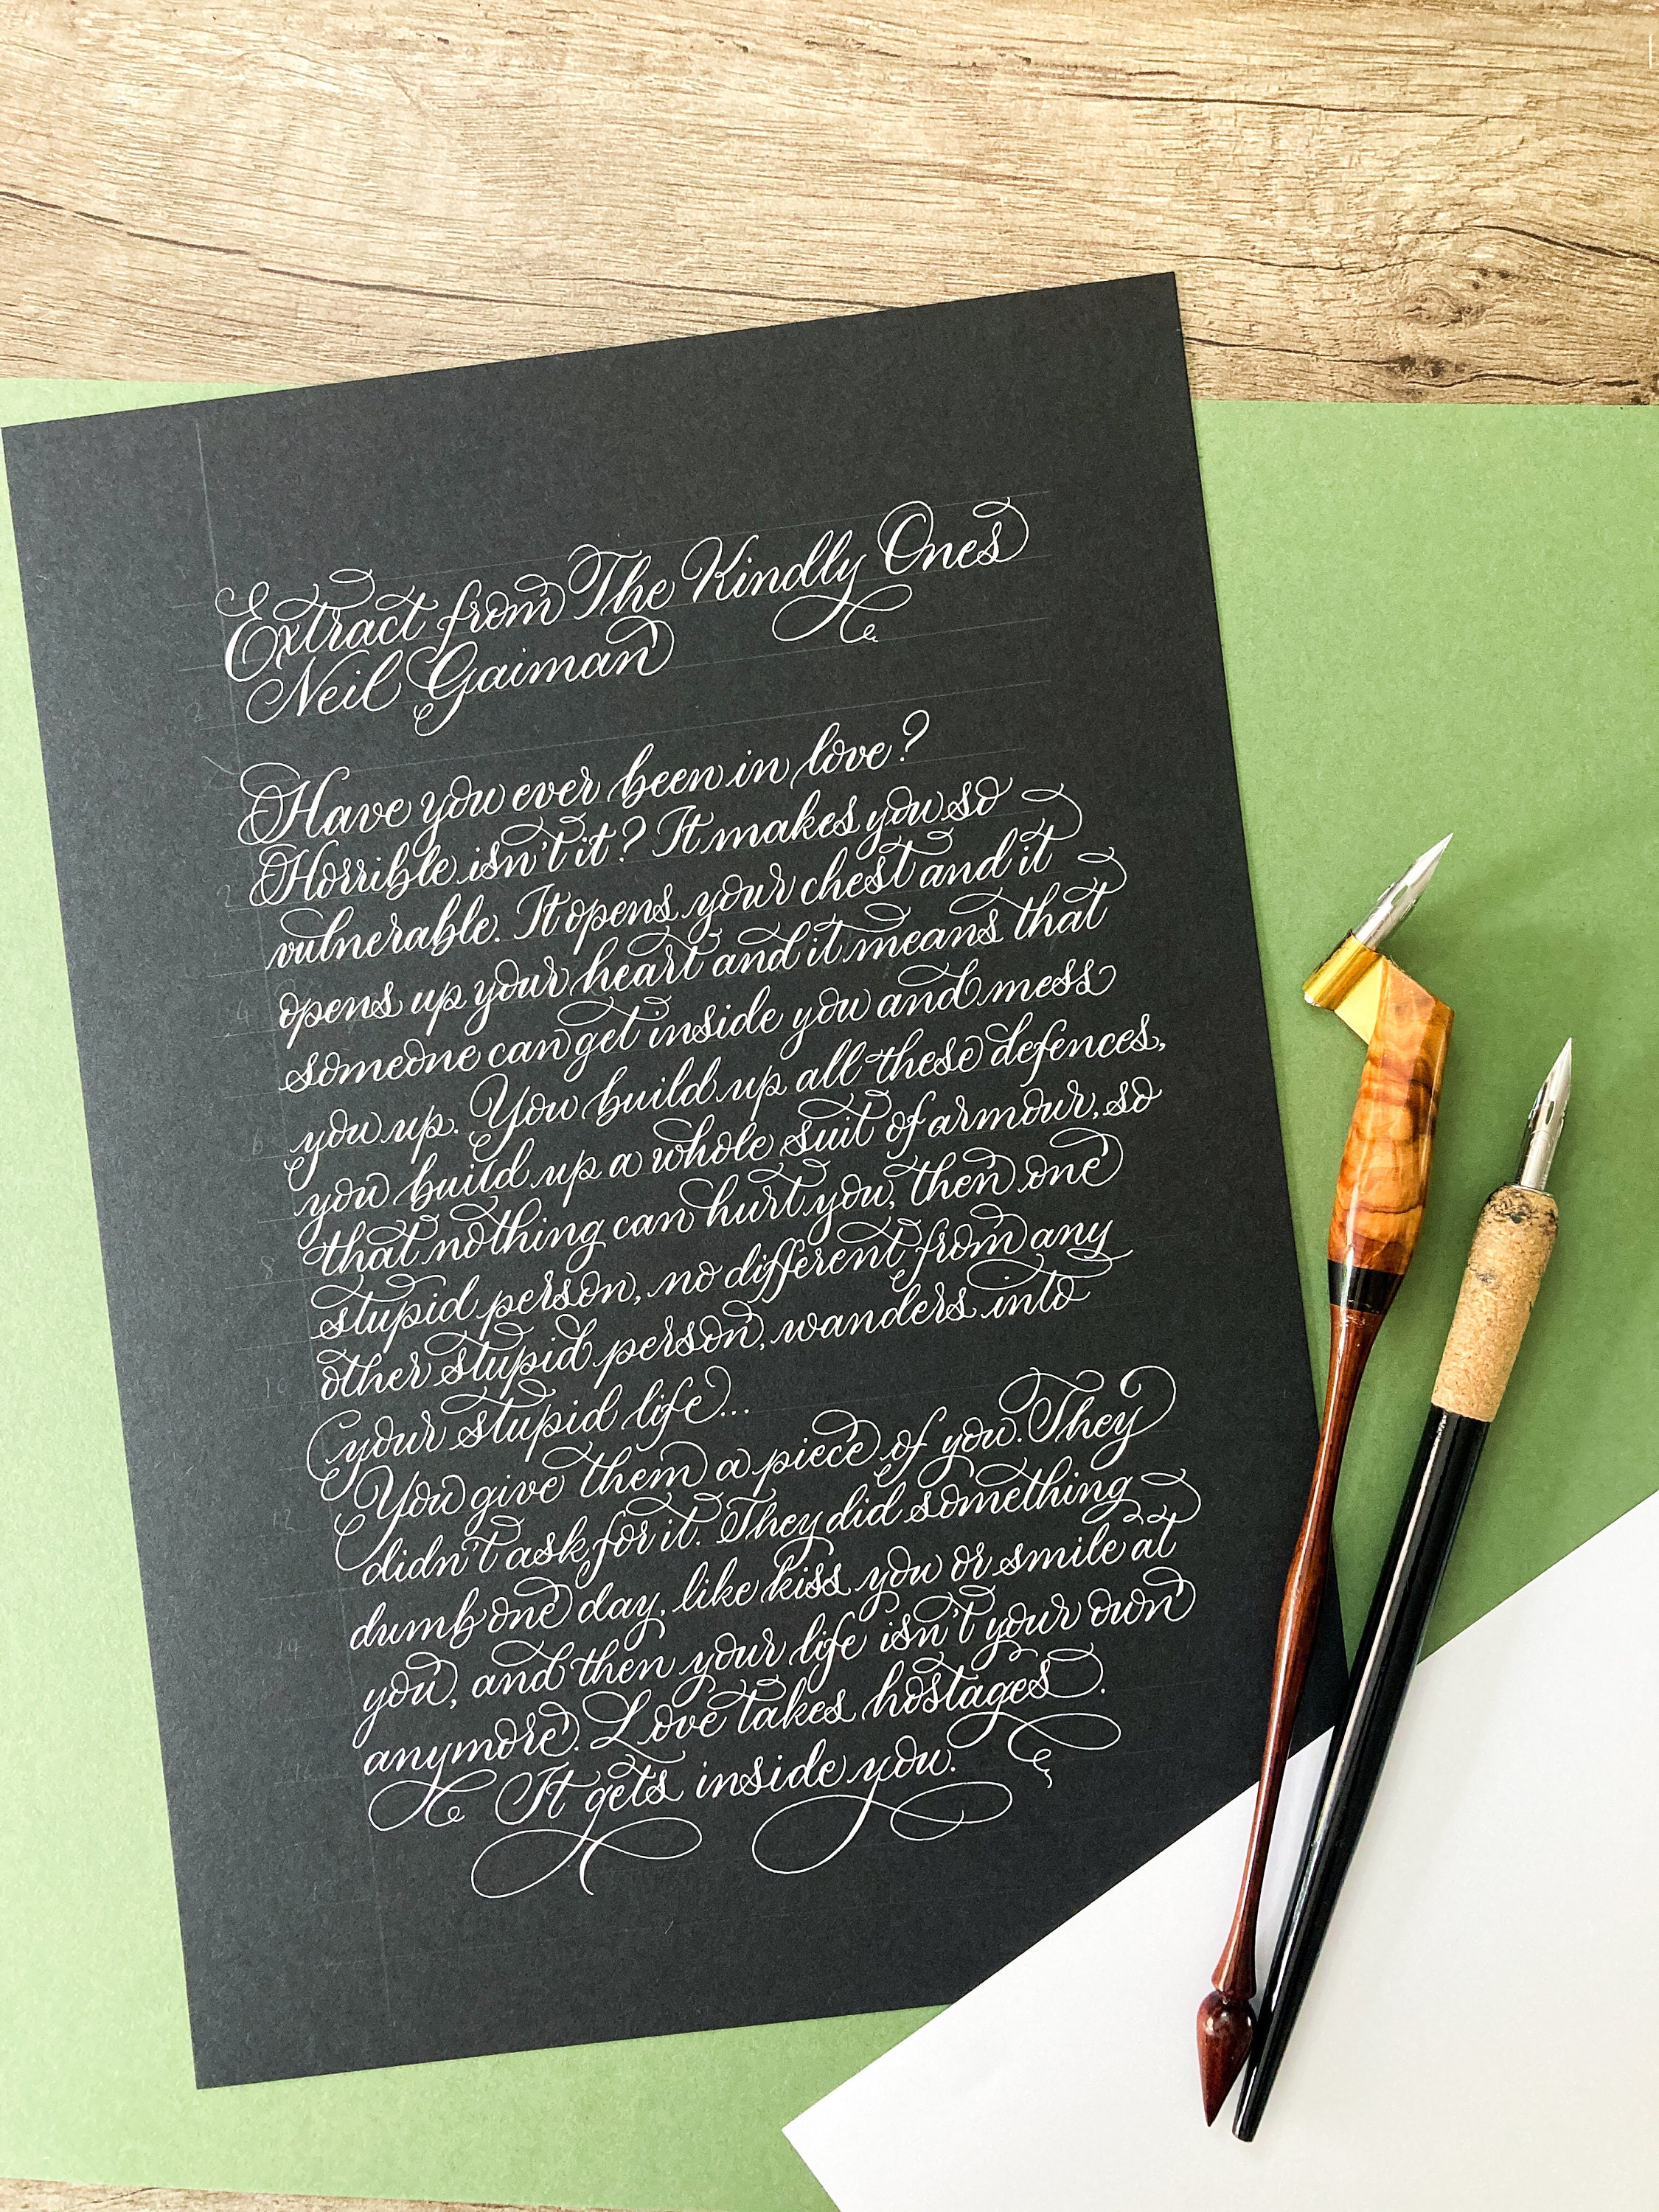 Extract from The Kindly Ones
Neil Gaiman
Have you ever been in love?
Horrible isn't it? It makes you so
vulnerable. It opens your chest and it
opens up your heart and it means that
someone can get inside you and mess
you up. You build up all these defences,
you build up a whole suit of armour, so
that nothing can hurt you, then one
stupid person, no different from any
other stupid person, wanders into
your stupid life...
You give them a piece of you. They
didn't ask for it. They did something
dumb one day, like kiss you or smile at
you, and then your life isn't your own
anymore. Love takes hostages.
It gets inside you.